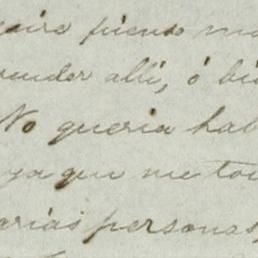 pienso ma
ender allí, ó bi
No queria hab
ya que me tou
arias personas,